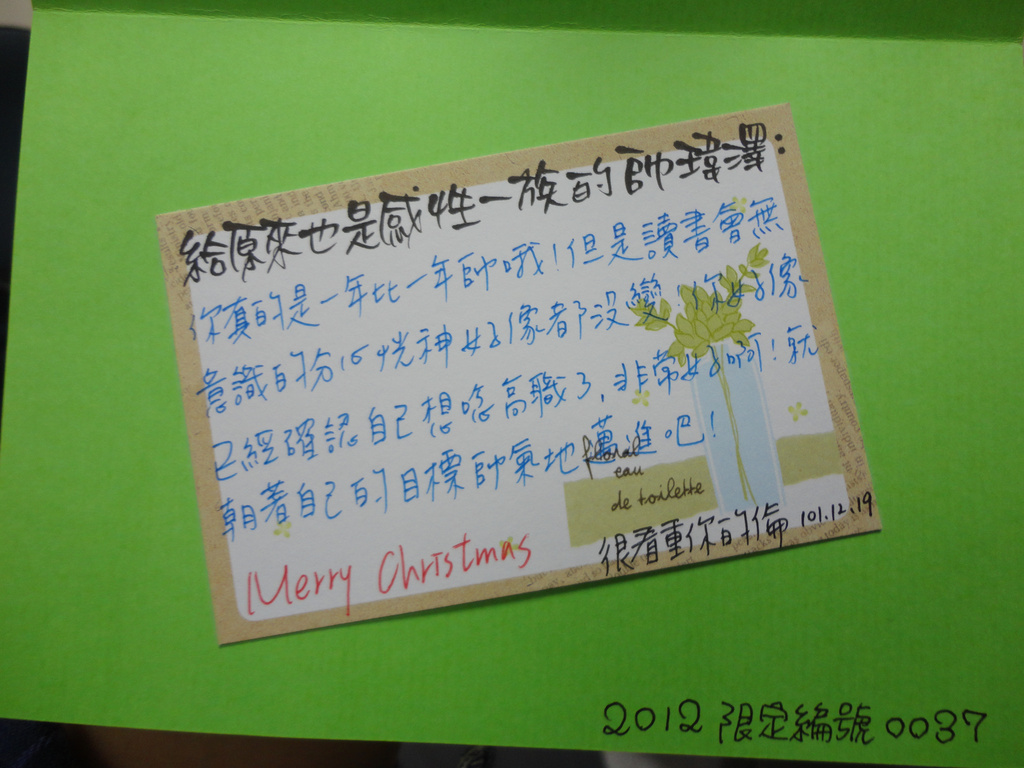 給原來也是感性一族的帥瑋澤:
你真的是一年比一年帥哦!但是讀書會無
意識的分心恍神好像都沒變!你好像
已經確認自己想唸高職了,非常好啊!就
朝著自己的目標帥氣地邁進吧!
floral
eau
de toilette
很看重你的倫 101.12.19
Merry Christmas
2012 限定編號 0037